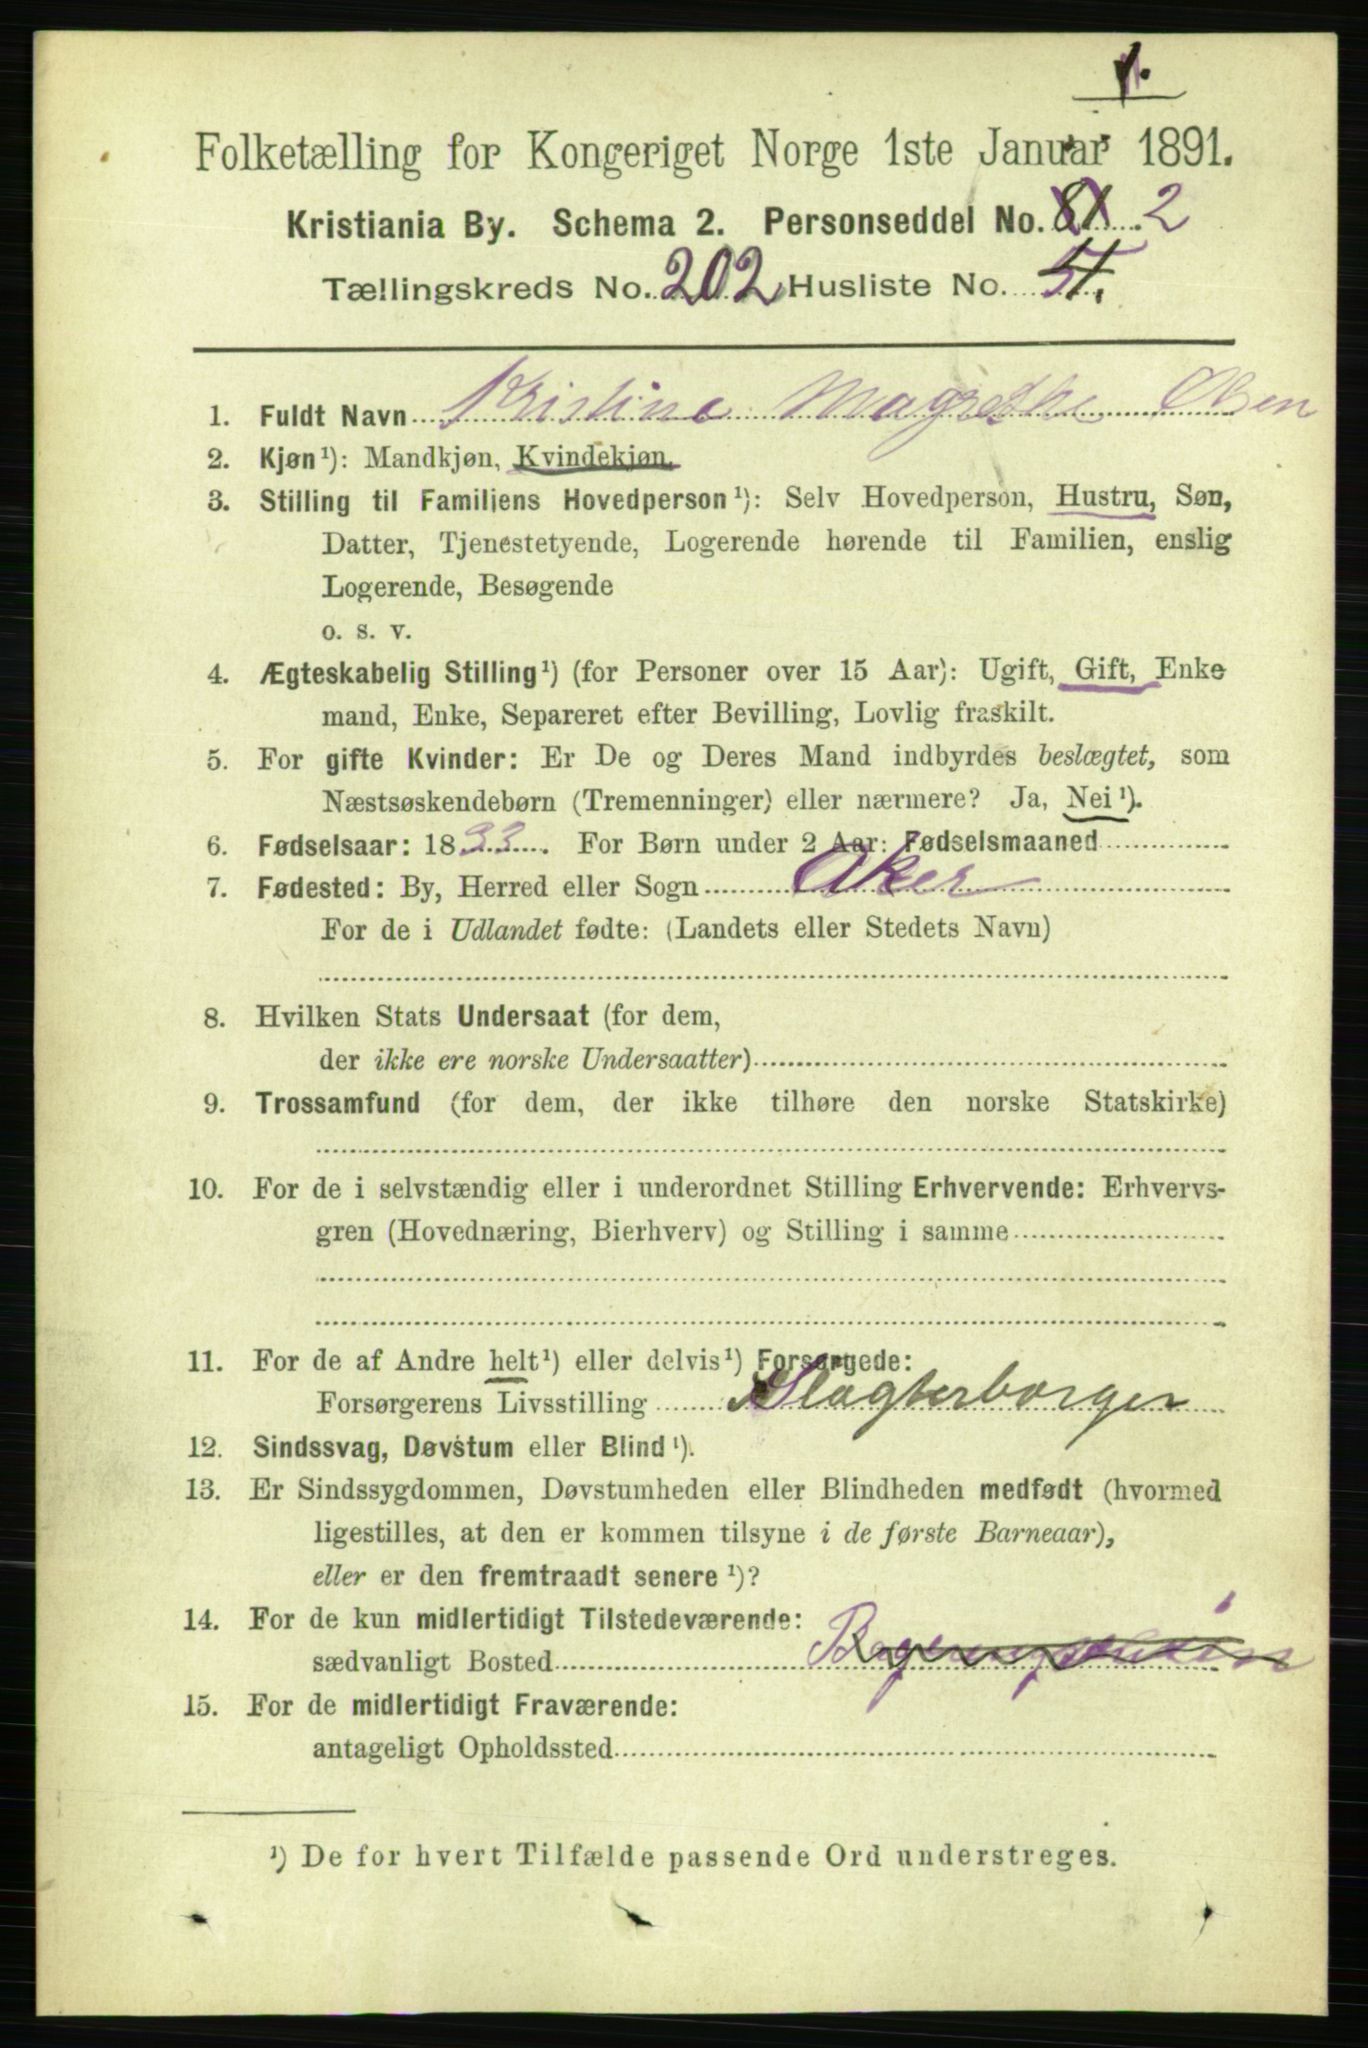 1.
Folketælling for Kongeriget Norge 1ste Januar 1891.
Kristiania By. Schema 2. Personseddel No. 2
Tællingskreds No. 202 Husliste No.
1. Fuldt Navn Kristine Magrethe Olsen
2. Kjøn¹): Mandkjøn, Kvindekjøn.
3. Stilling til Familiens Hovedperson¹): Selv Hovedperson, Hustru, Søn,
Datter, Tjenestetyende, Logerende hørende til Familien, enslig
Logerende, Besøgende
o. s. v.
4. Ægteskabelig Stilling¹) (for Personer over 15 Aar): Ugift, Gift, Enke
mand, Enke, Separeret efter Bevilling, Lovlig fraskilt.
5. For gifte Kvinder: Er De og Deres Mand indbyrdes beslægtet, som
Næstsøskendebørn (Tremenninger) eller nærmere? Ja, Nei¹).
6. Fødselsaar: 1833. For Børn under 2 Aar: Fødselsmaaned
7. Fødested: By, Herred eller Sogn Aker
For de i Udlandet fødte: (Landets eller Stedets Navn)
8. Hvilken Stats Undersaat (for dem,
der ikke ere norske Undersaatter)
9. Trossamfund (for dem, der ikke tilhøre den norske Statskirke)
10. For de i selvstændig eller i underordnet Stilling Erhvervende: Erhvervs-
gren (Hovednæring, Bierhverv) og Stilling i samme
11. For de af Andre helt¹) eller delvis¹) Forsørgede:
Forsørgerens Livsstilling Slagterborger
12. Sindssvag, Døvstum eller Blind¹).
13. Er Sindssygdommen, Døvstumheden eller Blindheden medfødt (hvormed
ligestilles, at den er kommen tilsyne i de første Barneaar),
eller er den fremtraadt senere¹)?
14. For de kun midlertidigt Tilstedeværende:
sædvanligt Bosted
15. For de midlertidigt Fraværende:
antageligt Opholdssted
¹) De for hvert Tilfælde passende Ord understreges.